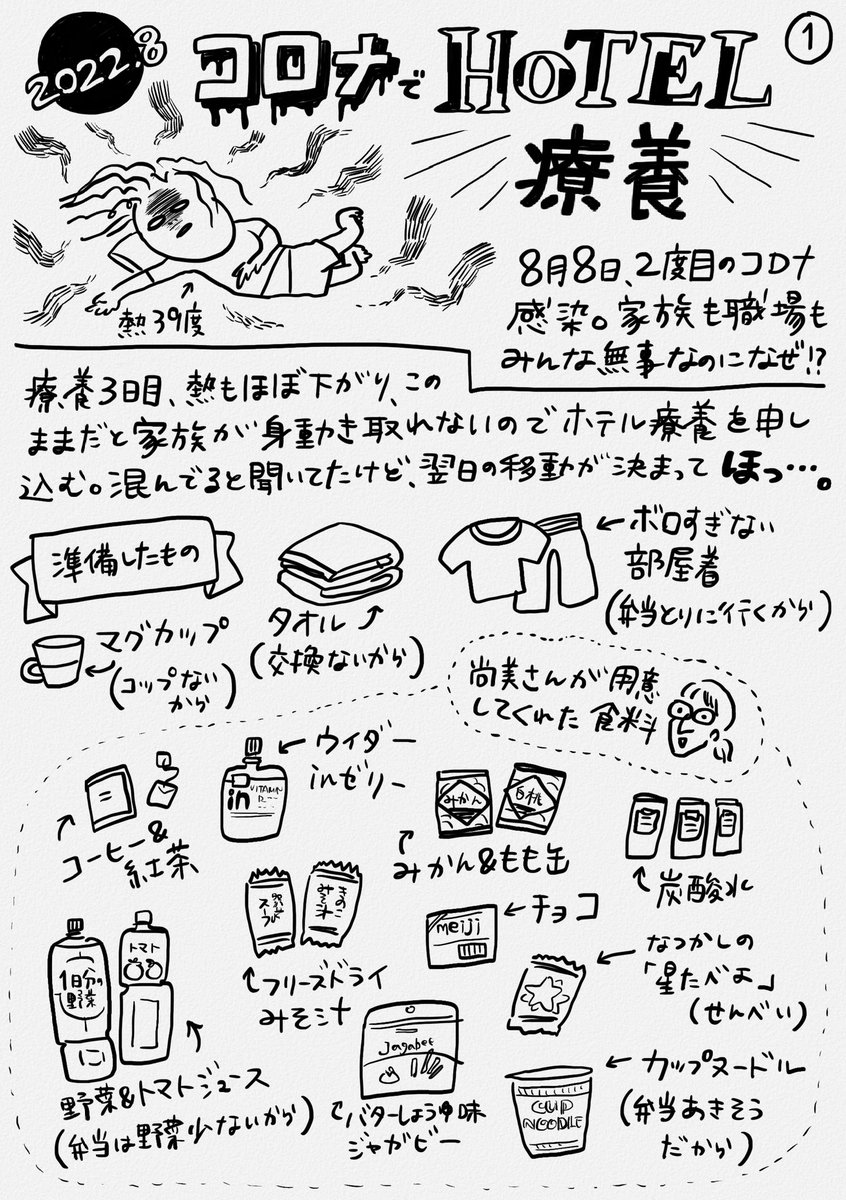 1
2022.8
コロナでHOTEL
療養
熱39度
8月8日、2度目のコロナ
感染。家族も職場も
みんな無事なのになぜ!?
療養3日目、熱もほぼ下がり、この
ままだと家族が身動き取れないのでホテル療養を申し
込む。混んでると聞いてたけど、翌日の移動が決まってほっ…。
準備したもの
タオル
(交換ないから)
ボロすぎない
部屋着
(弁当とりに行くから)
マグカップ
(コップない
から)
尚美さんが用意
してくれた食料
コーヒー&
紅茶
in
VITAMIN
ウイダー
inゼリー
みかん
白桃
みかん&もも缶
炭酸水
1日分の
野菜
トマト
野菜&トマトジュース
(弁当は野菜少ないから)
スープ
きのこ
みそ汁
フリーズドライ
みそ汁
meiji
チョコ
なつかしの
「星たべよ」
(せんべい)
Jagabee
バターしょうゆ味
ジャガビー
CUP
NOODLE
カップヌードル
(弁当あきそう
だから)